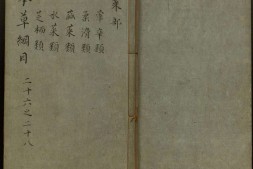 菜部
葷辛類
柔滑類
蓏菜類
水菜類
芝栭類
草綱目 二十六之二十八